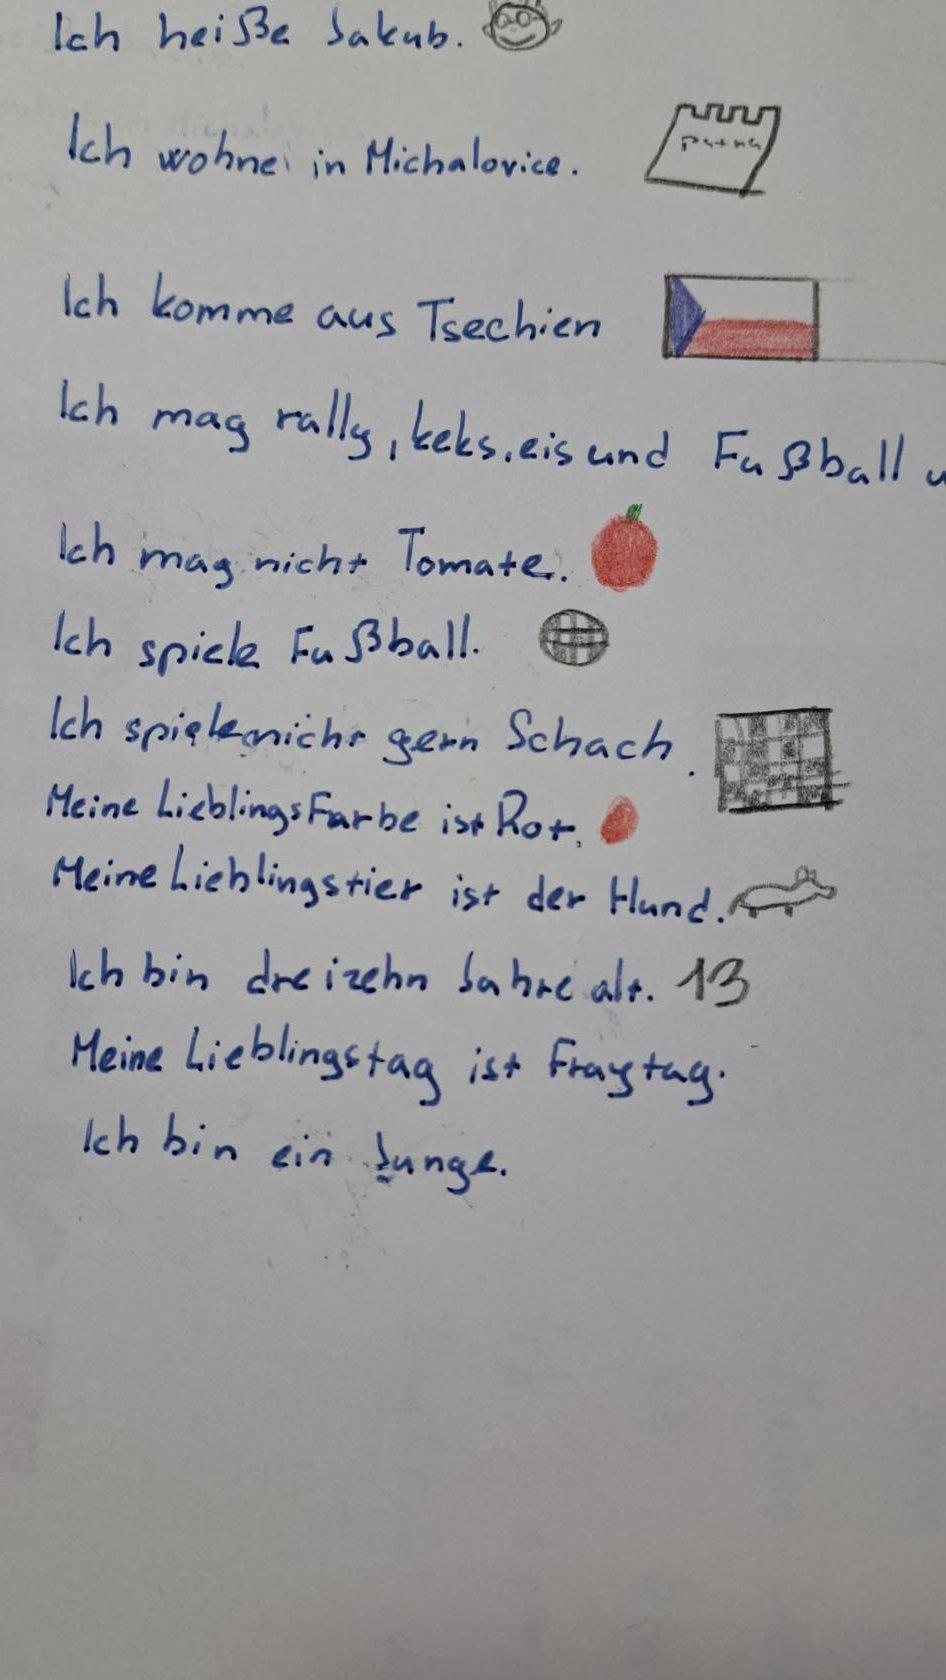 Ich heiße Jakub.
Ich wohne in Michalovice.
Ich komme aus Tsechien
Ich mag rally, keks, eis und Fußball
Ich mag nicht Tomate.
Ich spiele Fußball.
Ich spiele nicht gern Schach.
Meine LieblingsFarbe ist Rot.
Meine Lieblingstier ist der Hund.
Ich bin dreizehn Jahre alt. 13
Meine Lieblingstag ist Fraytag.
Ich bin ein Junge.